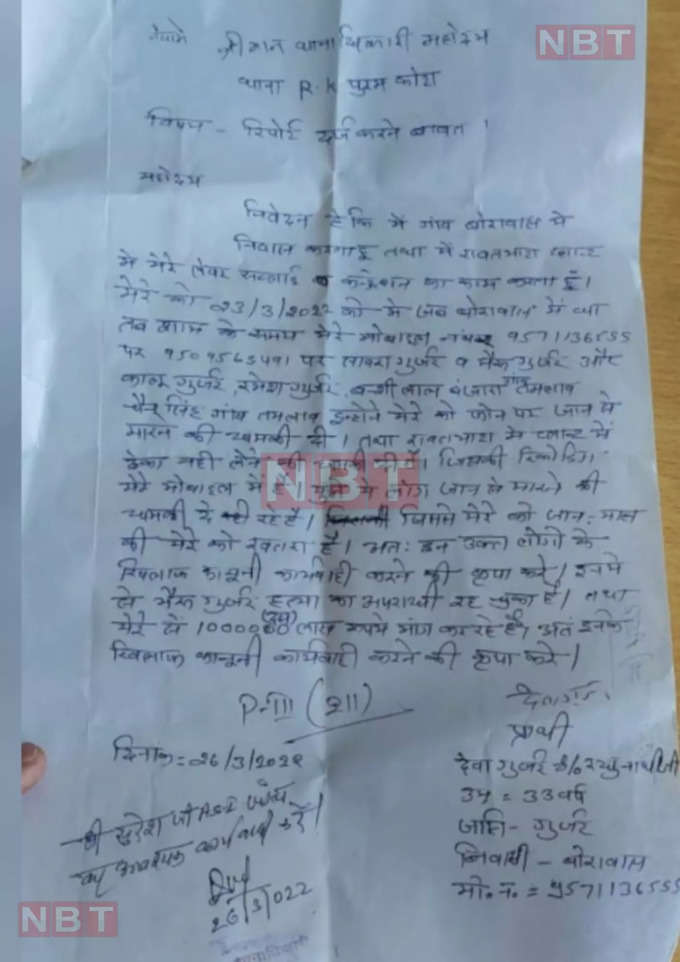 NBT
सेवामें श्रीमान थानाधिकारी महोदय
थाना R.K पुरम कोटा
विषय - रिपोर्ट दर्ज करने बाबत।
महोदय
निवेदन है कि मैं गांव बोरावास में
निवास करता हूं तथा में रावतभाटा प्लान्ट
में मेरे लेबर सप्लाई व का काम करता हूँ।
मेरे को 23/3/2022 को मे जब बोरावास में था
तब शाम के समय मेरे मोबाइल नंबर 9571136555
पर 9509565491 पर गुर्जर व भैरू गुर्जर और
कालू गुर्जर, रमेश गुर्जर, बंजारा गांव तमलाव
सिंह गांव तमलाव इन्होने मेरे को फोन पर जान से
मारन की धमकी दी। तथा रावतभाटा में प्लान्ट में
ठेका नही लेने की धमकी दी। जिसकी रिकोर्डिंग
मेरे मोबाइल में है। मुझे ये लोग जान से मारने की
धमकी दे रहे है। जिससे मेरे को जान: माल
की मेरे को खतरा है। अत: इन उक्त लोगो के
खिलाफ कानूनी कार्यवाही करने की कृपा करे। इनमे
से भैरू गुर्जर हत्या का अपराधी रह चुका है। तथा
मेरे से लाख रूपये मांग कर रहे है। अतं इनके
खिलाफ कानूनी कार्यवाही करने की कृपा करे।
NBT
दिनांक = 26/3/2022
प्रार्थी
देवा गुर्जर S/o
उम्र = 33 वर्ष
जाति - गुर्जर
निवासी - बोरावास
मो. न. = 9571136555
श्री सुरेश जी
आवश्यक कार्यवाही करें।
26/3/022
NBT
NBT